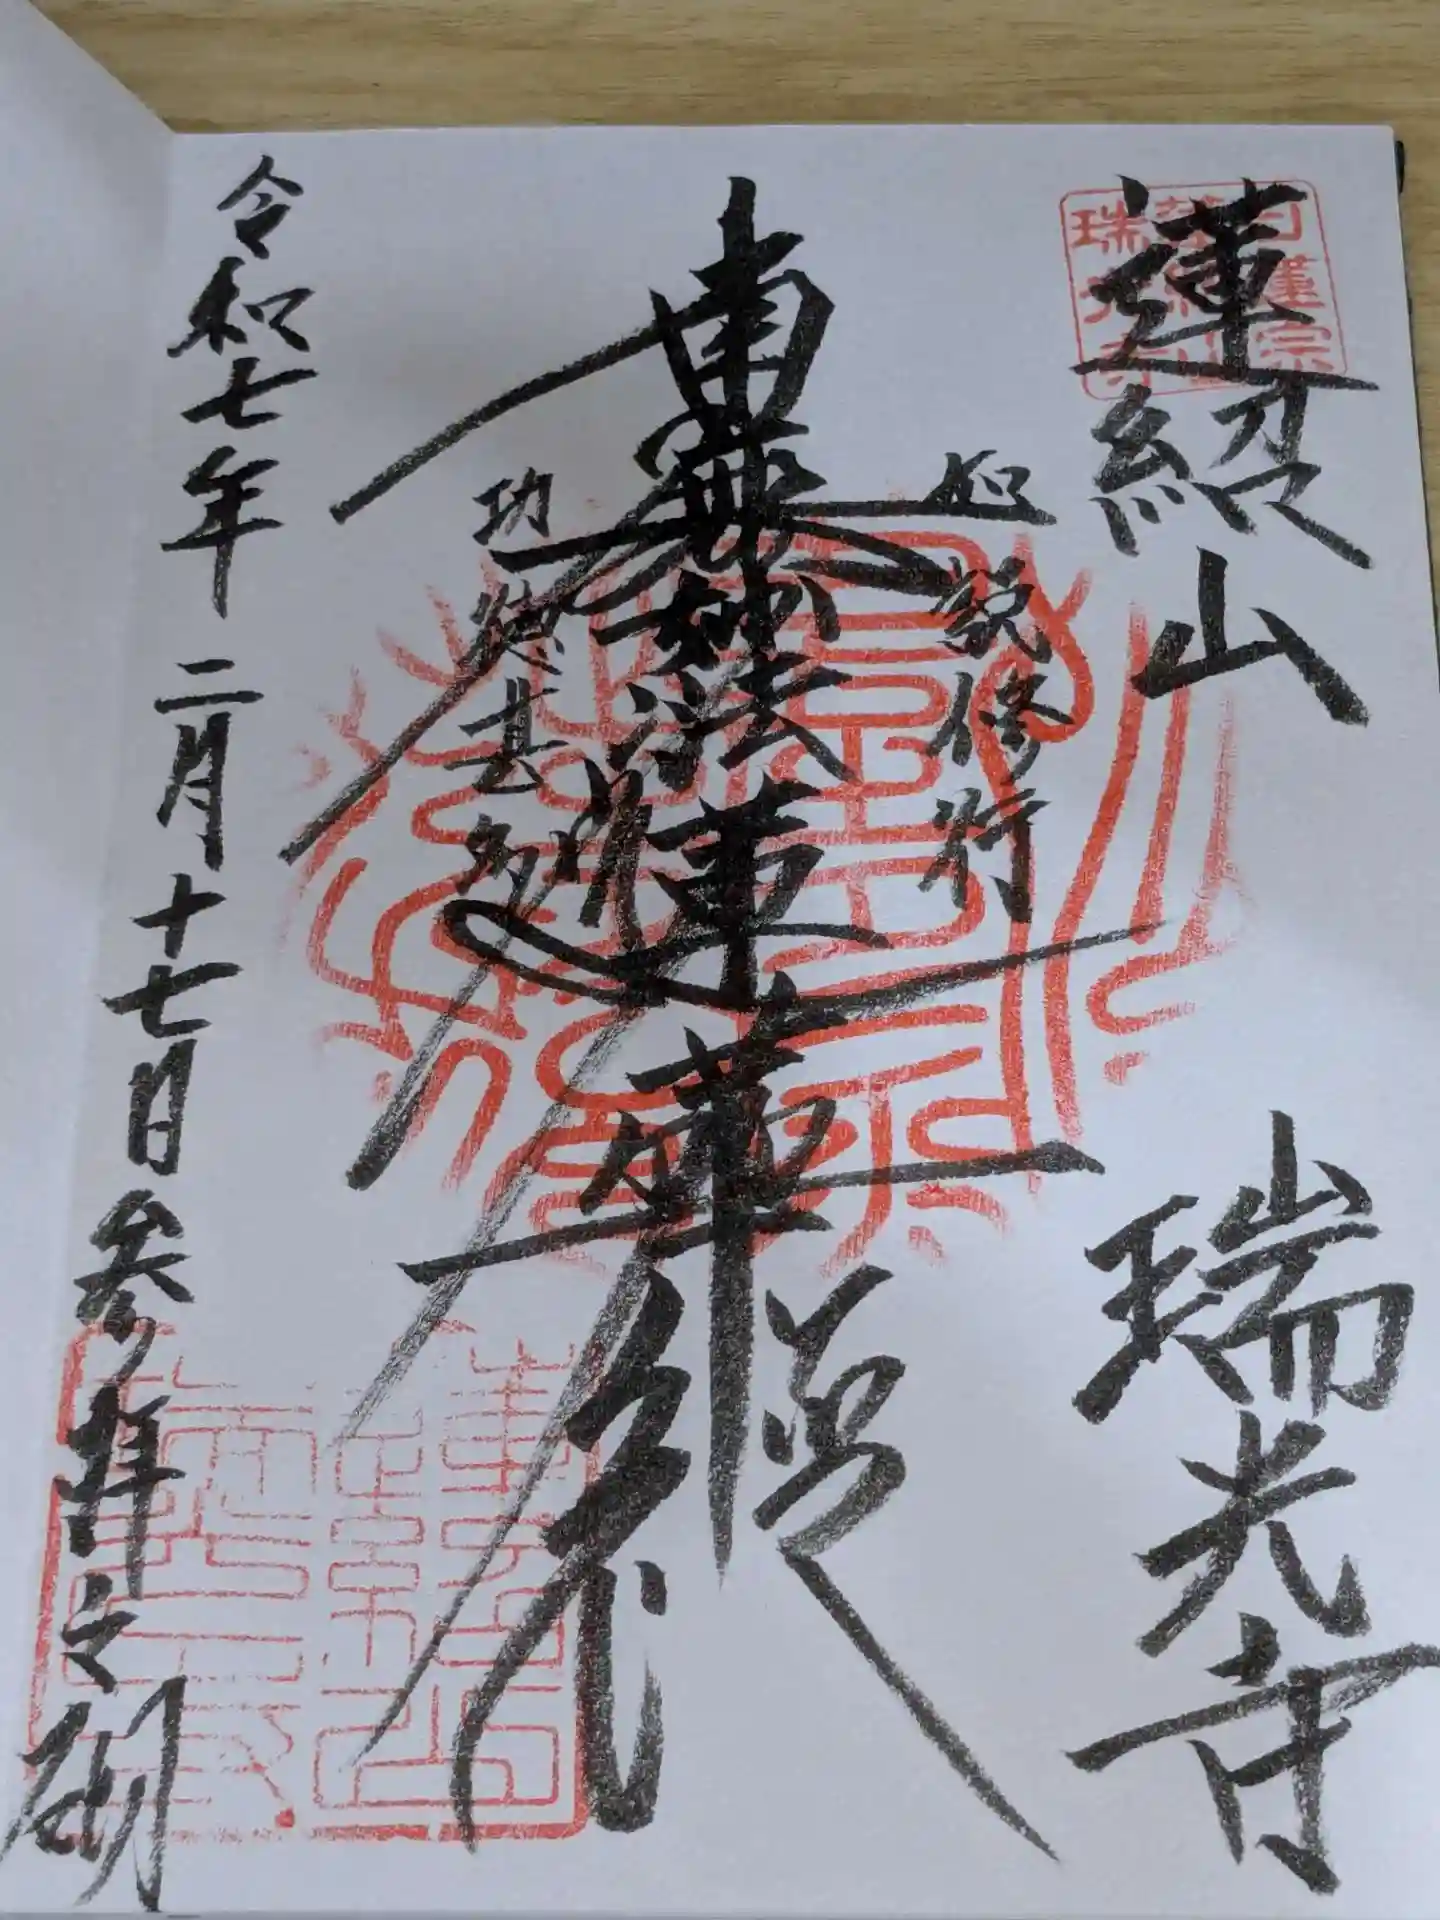 蓮紹山　瑞光寺
日蓮宗
蓮紹山
瑞光寺
如説修行
南無妙法蓮華経
功徳甚多
令和七年二月十七日参拝之砌